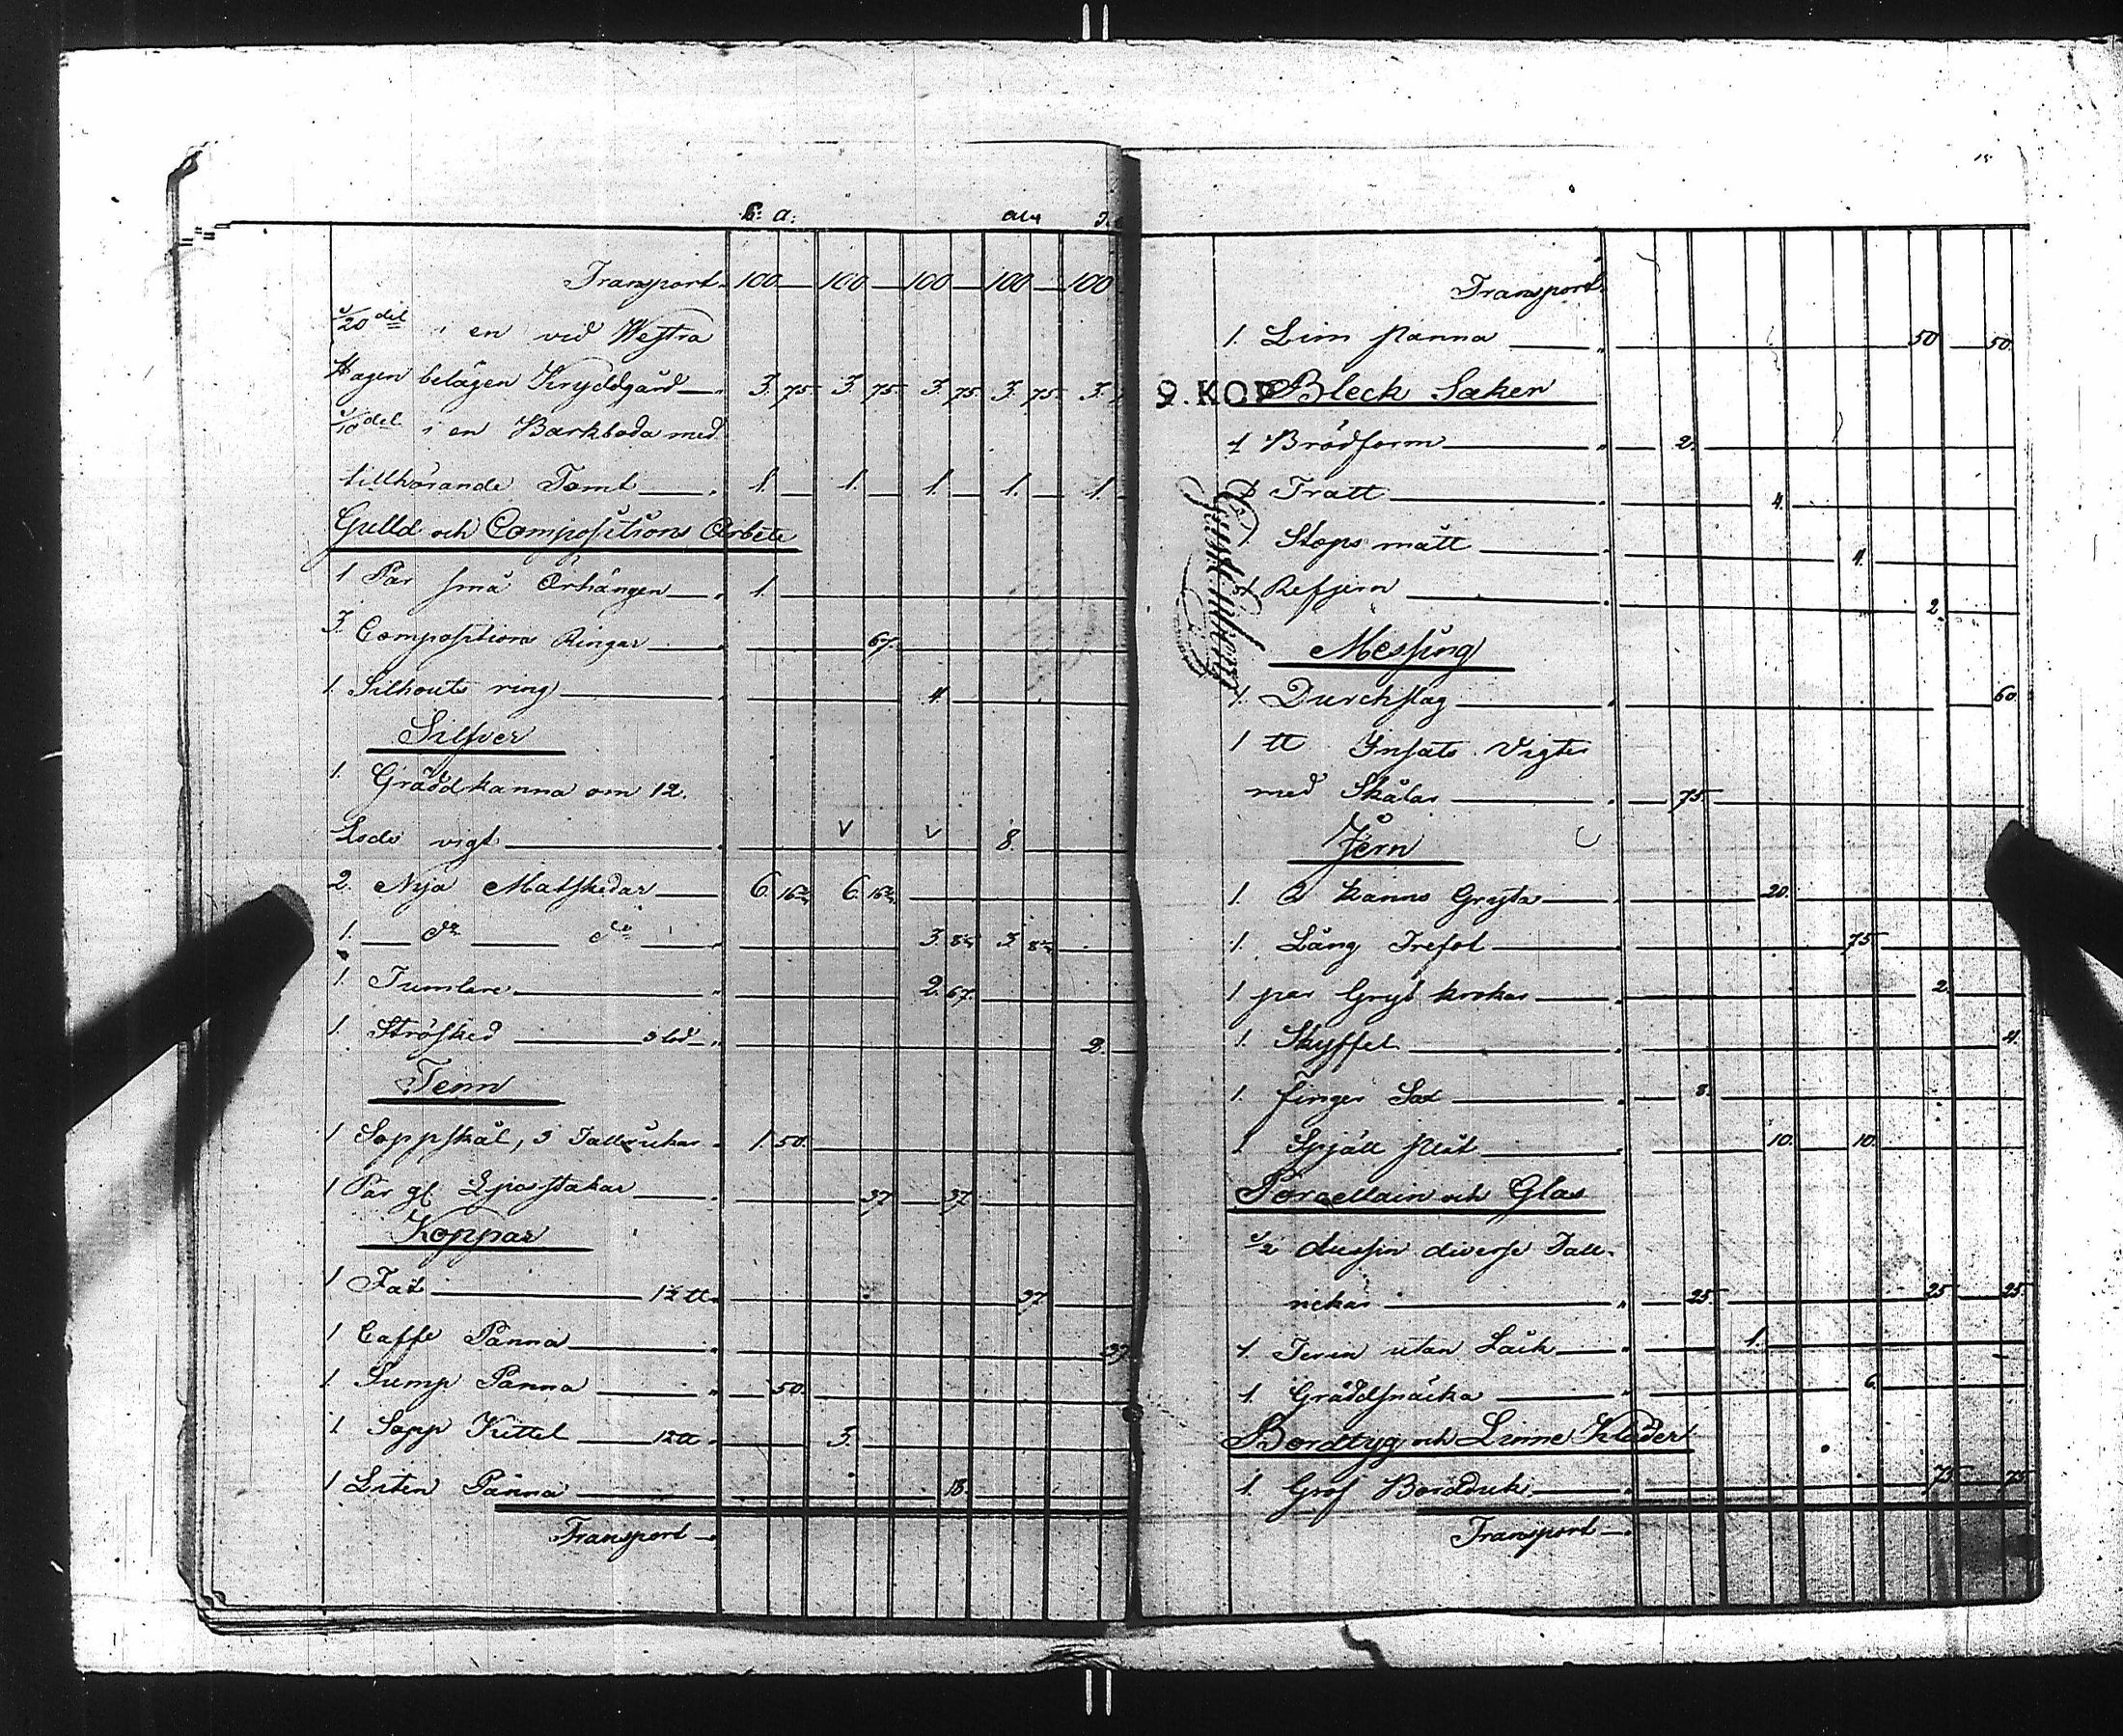 Transport 100 100 100 100 100
1/20 del i en vid Westra
Hagen belägen Kryddgård 3. 75. 3. 75. 3. 75. 3. 75. 3.
1/10 del i en Barkboda med
tillhörande Tomt 1. 1. 1. 1. 1.
Gulld och Compositions Arbete
1 Par små Örhängen 1.
3. Compositions Ringar 67.
1. Silhouts ring 4.
Silfver
1. Gräddkanna om 12.
Lods vigt v v 8.
2. Nya Matskedar 6. 16 6. 16
1. do do 3. 8 3. 8
1. Tumlare 2. 67.
1. Strösked 3 lod 2.
Tenn
1 Soppskål, 3 Tallrickar 1. 50.
1 Par gl Ljusstakar 37. 37.
Koppar
1 Fat 1½ tt 37
1 Caffe Panna
1. Sump Panna 50.
1. Sopp Kittel 12 tt 3.
1 Liten Panna 18.
Transport
Transport
1. Lim Panna 50 50.
9. KOP Bleck Saker
1 Brödform 2.
1 Tratt 4.
1 Stops mått 4.
1 Refjern 2.
Messing
1. Durchslag 60.
1 tt Insats Vigter
med Skålar 75.
Jern
1. 2 kanns Gryta 20.
1. Lång Trefot 75
1 par Gryt krokar 2.
1. Skyffel 4.
1. finger Sax 8.
1 Spjäll plåt 10. 10.
Porcellain och Glas
1/2 dussin diverse Tall-
rickar 25. 25 25.
1. Terin utan Låck 1.
1. Gräddsnäcka 6.
Bordtyg och Linne Kläder
1. Grof Bordduk 75 75
Transport